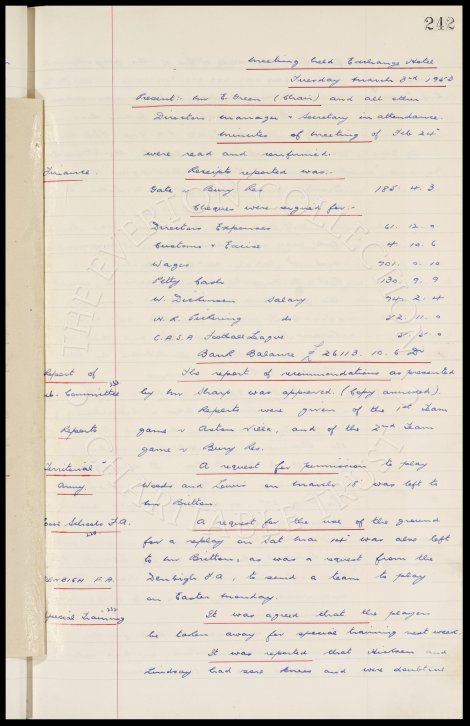 242
Meeting held Exchange Hotel
Tuesday March 3rd 1953
Present:- Mr E. Green (Chair) and all other
Directors. Manager & Secretary in attendance.
Minutes of Meeting of Feb 24th
were read and confirmed.
Finance. Receipts reported was:-
Gate v Bury Res 185. 4. 3
Cheques were signed for:-
Directors Expenses 61. 12. 0
Customs & Excise 4. 10. 6
Wages 701. 0. 10
Petty Cash 130. 9. 9
W. Dickinson Salary 74. 2. 4
H. R. Pickering do 52. 11. 0
C.A.S.A. Football League 5. 5. 0
Bank Balance £26113. 10. 6 Dr
Report of The report of recommendations as presented
Sub. Committee by Mr Sharp was approved. (Copy annexed).
Reports Reports were given of the 1st Team
game v Aston Villa, and of the 2nd Team
game v Bury Res.
Territorial A request for permission to play
Army. Woods and Lewis on March 18th was left to
Mr Britton.
Schools F.A. A request for the use of the ground
for a replay on Sat Mar 14th was also left
to Mr Britton, as was a request from the
DENBIGH F.A. Denbigh F.A., to send a team to play
on Easter Monday.
Special Training It was agreed that the players
be taken away for special training next week.
It was reported that Hickson and
Lindsay had sore knees and were doubtful
THE EVERTON COLLECTION
CHARITABLE TRUST